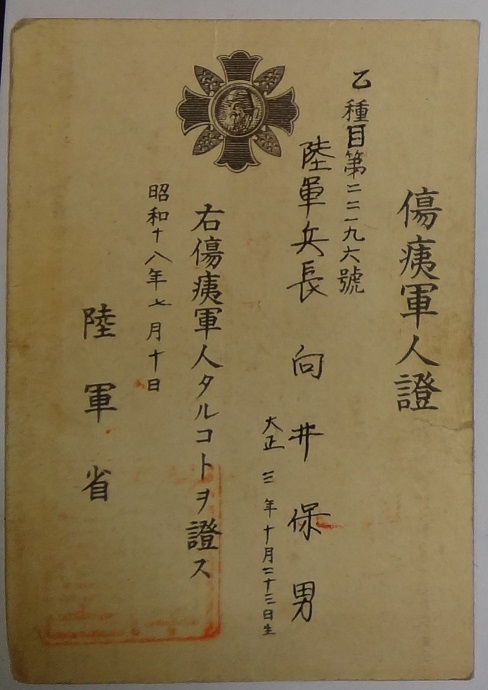 傷痍軍人證
乙種目第二二一九六號
陸軍兵長 向井保男
大正三年十月二十三日生
右傷痍軍人タルコトヲ證ス
昭和十八年七月十日
陸軍省